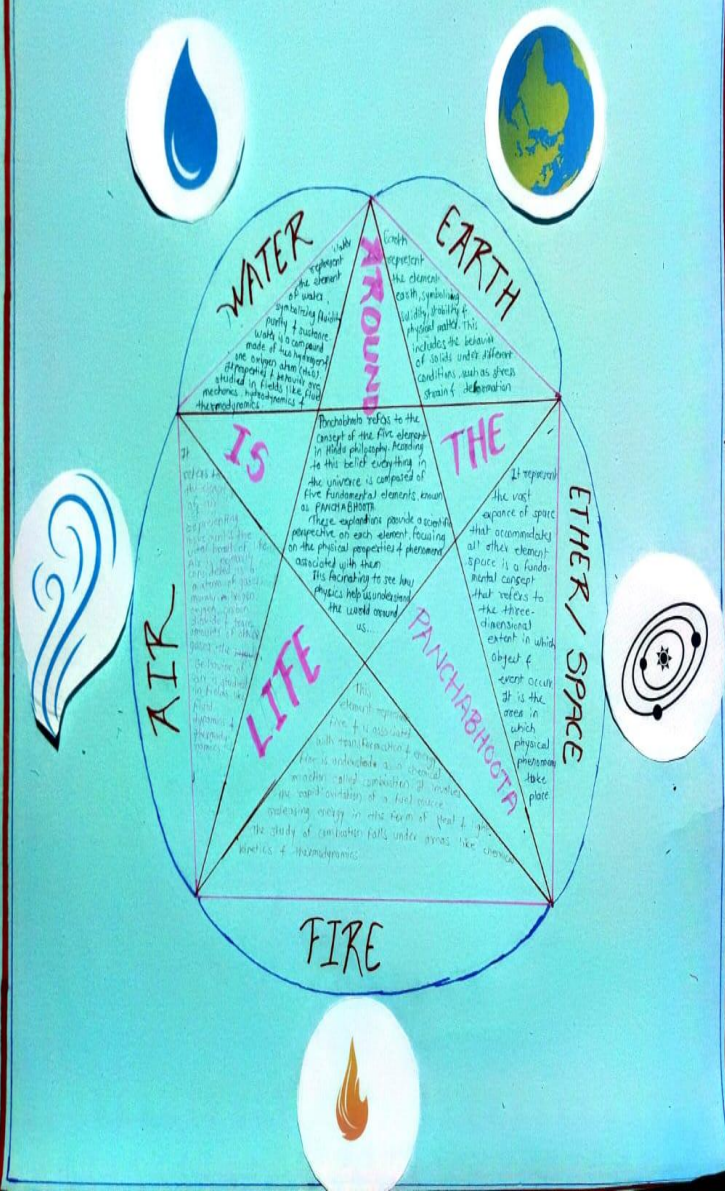 WATER
Water
represent
the element
of water,
symbolizing fluidity
purity & sustance
Water is a compound
made of two hydrogen &
one oxygen atom
properties & behavior are
studied in fields like fluid
mechanics, hydrodynamics &
thermodynamics.
EARTH
Earth
represent
the element
earth, symbolising
solidity, stability &
physical matter. This
includes the behavior
of solids under different
conditions, such as stress
strain & deformation
AROUND
IS
THE
Panchabhoota refers to the
consept of the five element
in Hindu philosophy. According
to this belief everything in
the universe is composed of
five fundamental elements, known
as PANCHABHOOTA
These explandions provide a scientific
perspective on each element, focusing
on the physical properties & phenomena
associated with them
Its facinating to see how
physics help us understand
the world around
us...
ETHER/SPACE
It represent
the vast
expance of space
that accommodates
all other element
space is a funda-
mental consept
that refers to
the three-
dimensional
extent in which
object &
event occur.
It is the
area in
which
physical
phenomena
take
place
AIR
It
refers to
fluid
dynamics &
thermody-
namics
LIFE
PANCHABHOOTA
This
element represent
fire & is associated
with transformation & energy
Fire is a chemical
reaction called combustion. It involves
the rapid oxidation of a fuel source
releasing energy in the form of heat & light
The study of combustion falls under areas like chemical
kinetics & thermodynamics.
FIRE